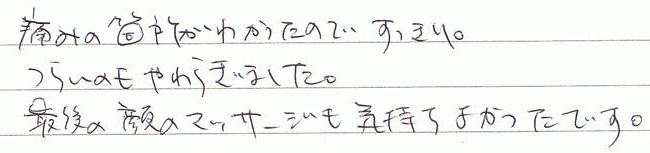 痛みの箇所がわかったので、すっきり。
つらいのもやわらぎました。
最後の顔のマッサージも気持ちよかったです。